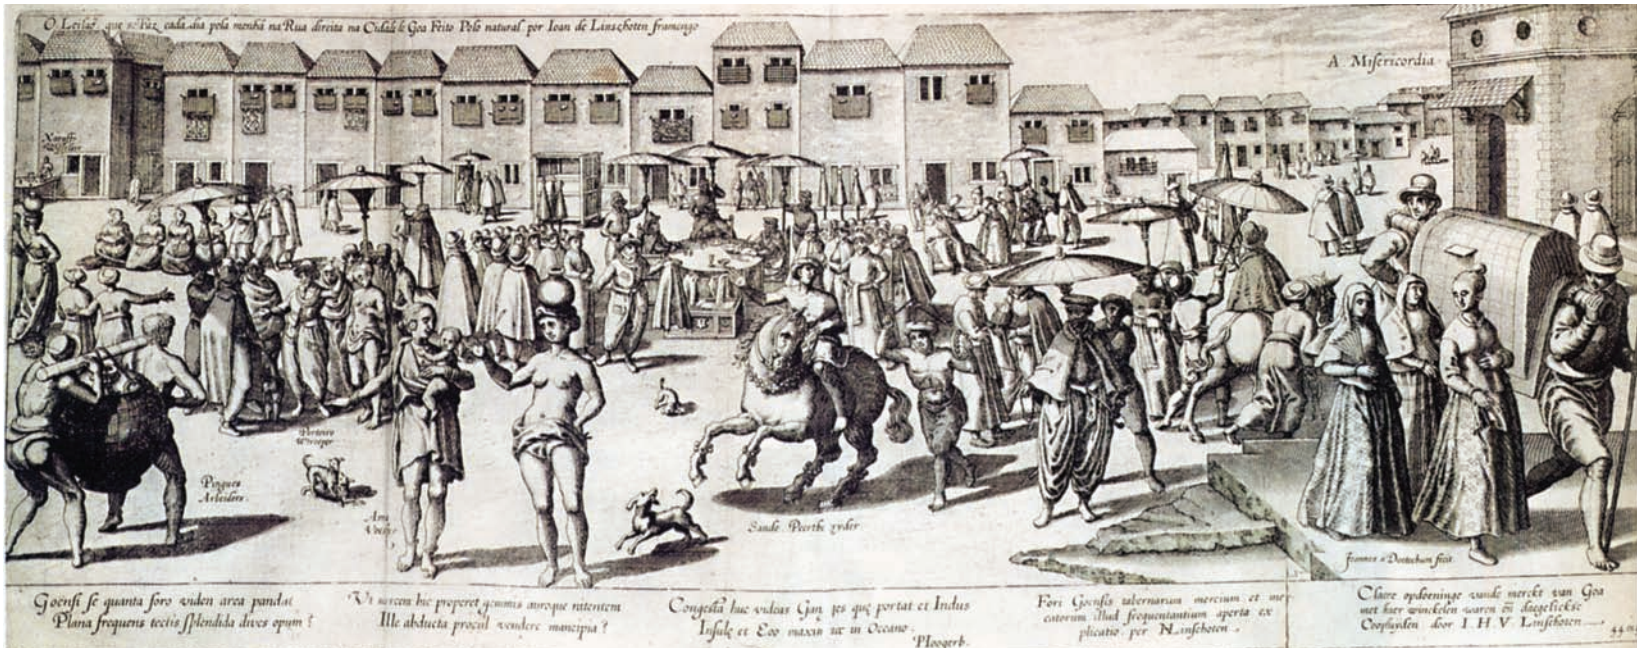 O Leilao, que se faz cada dia pola menhã na Rua direita na Cidade de Goa Feito Polo natural por Ioan de Linschoten framengo
A Misericordia
Pingues
Arbeiders.
Sande Peerthe ryder
Joannes a Doetechum fecit
Goensi se quanta foro viden area pandat
Plana frequens tectis splendida dives opum?
Ut mercem hic properet gemmis auroque nitentem
Ille abducta procul vendere mancipia?
Congesta huc videas Gan ges que portat et Indus
Insulę et Eoo maxin tæ in Oceano.
Ploogerb.
Fori Goensis tabernarum mercium et mer
catorum illud frequentantium aperta ex
plicatio per Linschoten
Claire opdoeninge vande merckt van Goa
met haer winckelen waren dagelickse
Coopluyden door I. H. V. Linschoten